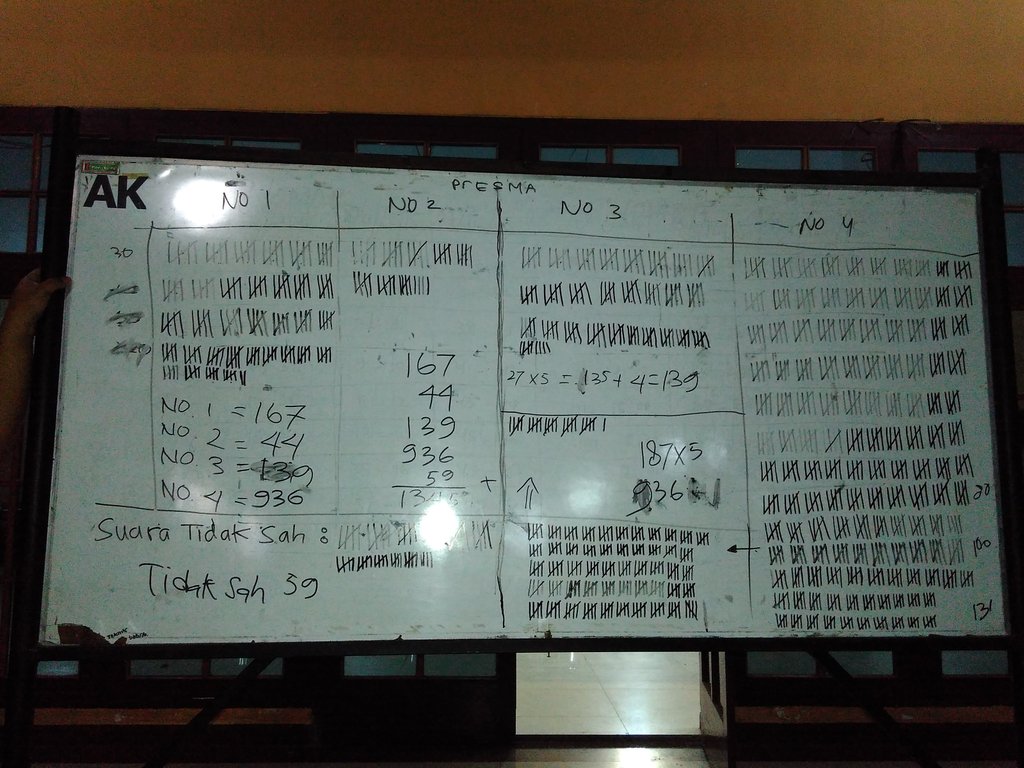 PrESMA
AK
NO 1
NO 2
NO 3
NO 4
30
27 x 5 = 135 + 4 = 139
NO. 1 = 167
NO. 2 = 44
NO. 3 = 139
NO. 4 = 936
167
44
139
936
59 +
187 x 5
936
Suara Tidak Sah :
Tidak Sah 59